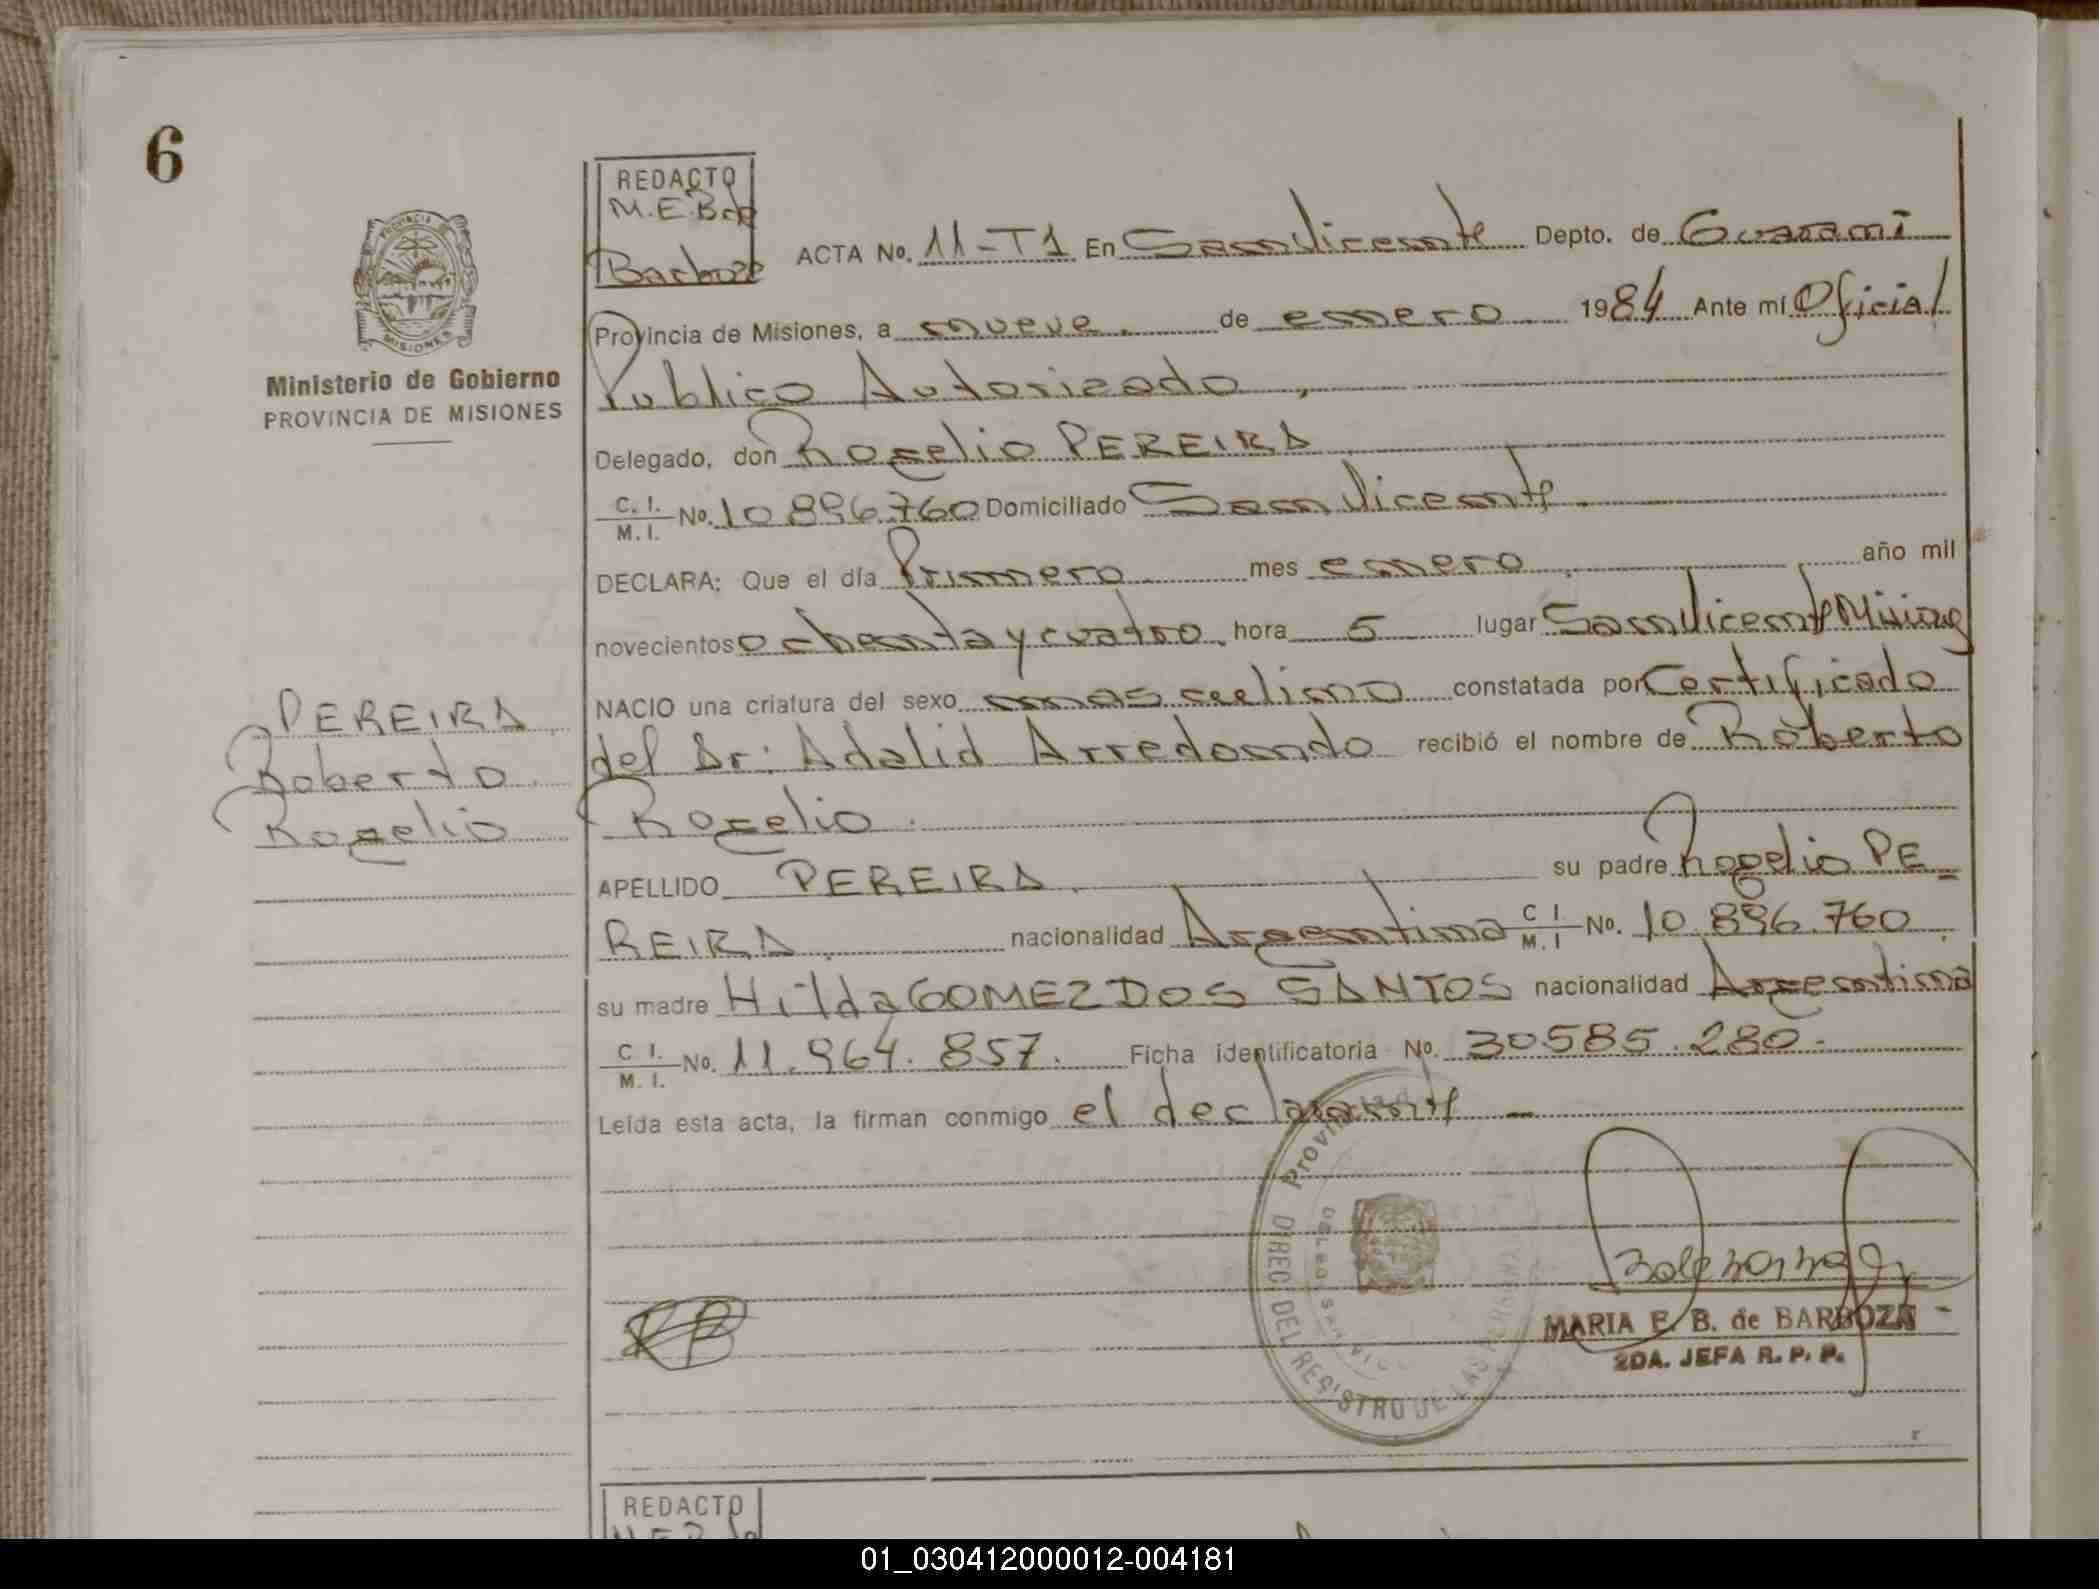 6
REDACTO
M.E.B de
Barboza
ACTA No. 11-T1 En San Vicente Depto. de Guaraní
PROVINCIA
MISIONES
Provincia de Misiones, a nueve. de enero. 1984 Ante mí Oficial
Ministerio de Gobierno
PROVINCIA DE MISIONES
Publico Autorizado,
Delegado, don Rogelio PEREIRA
C. I.
M. I. No. 10.896.760 Domiciliado San Vicente.
DECLARA: Que el día Primero mes enero año mil
novecientos ochenta y cuatro. hora 5 lugar San Vicente Misiones
NACIO una criatura del sexo masculino constatada por Certificado
PEREIRA
Roberto
Rogelio
del Dr: Adalid Arredondo recibió el nombre de Roberto
Rogelio.
APELLIDO PEREIRA. su padre Rogelio PE-
REIRA nacionalidad Argentina C I. M. I No. 10.896.760
su madre Hilda GOMEZ DOS SANTOS nacionalidad Argentina
C I.
M. I. No. 11.964.857. Ficha identificatoria No. 30585.280.-
Leída esta acta, la firman conmigo el declarante -
DIREC. DEL REGISTRO DE LAS PERSONAS
MARIA E. B. de BARBOZA -
2DA. JEFA R. P. P.
REDACTO
M.E.B de
01_030412000012-004181